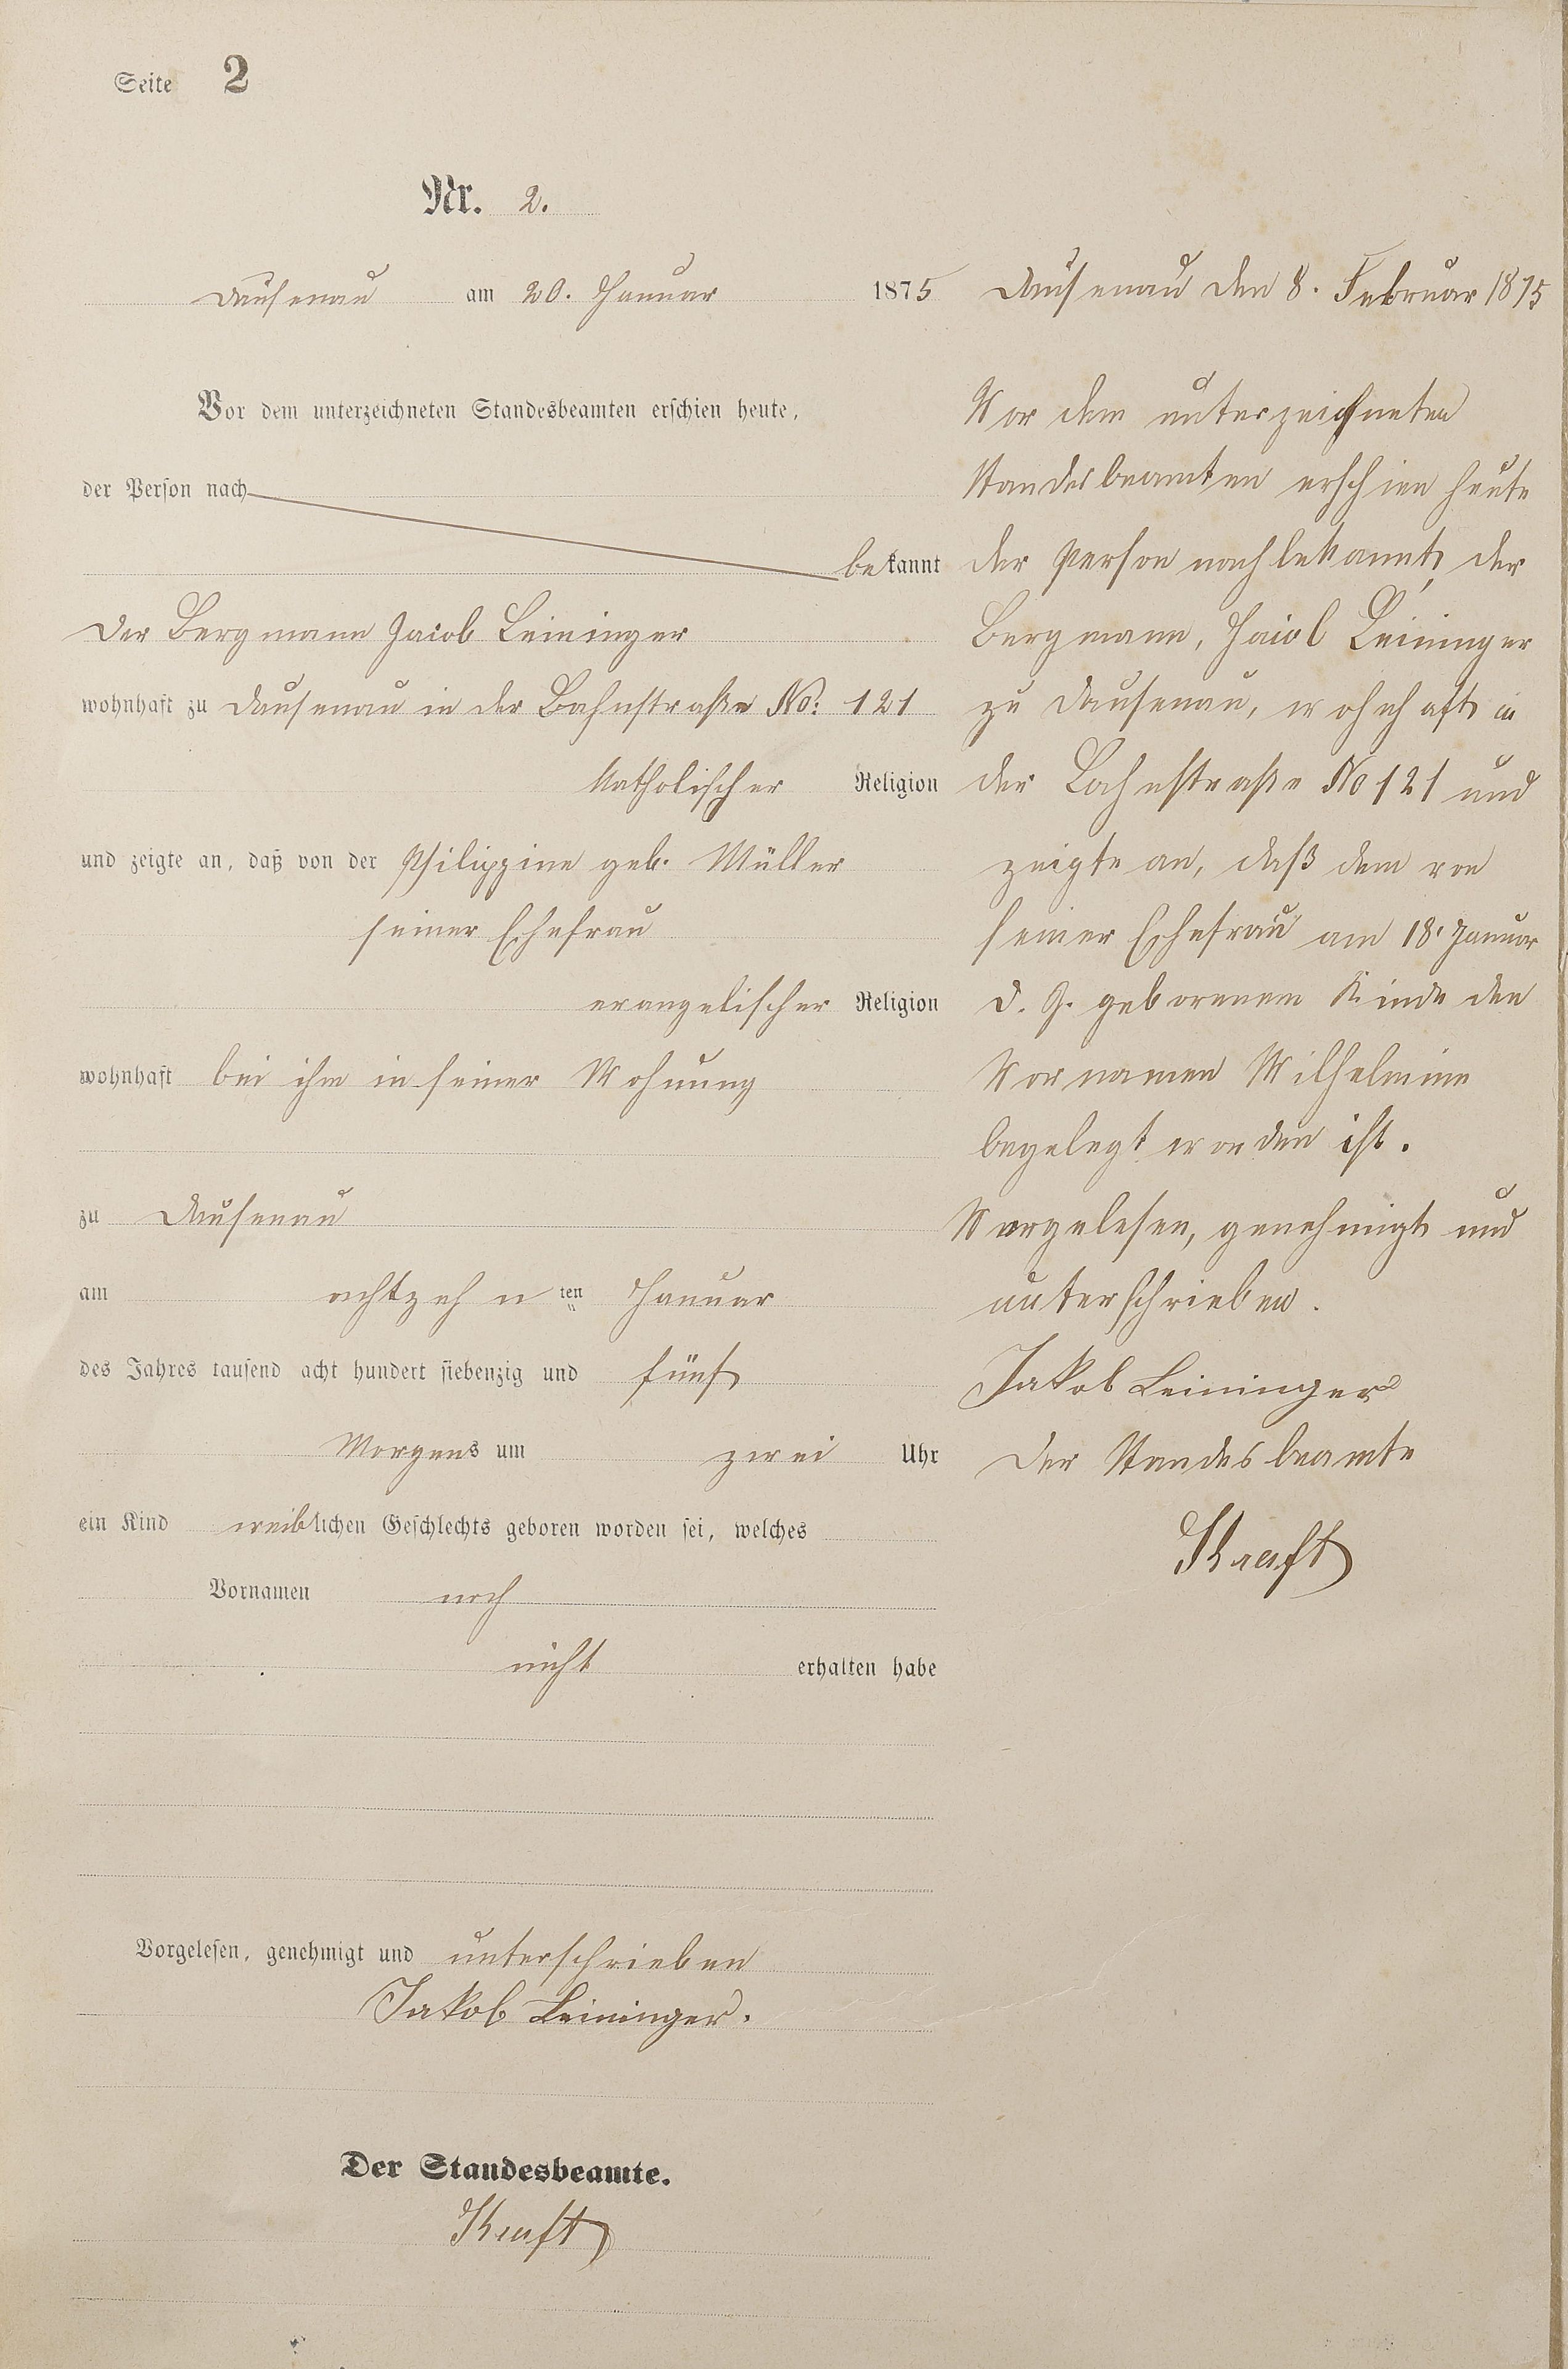 Seite 2
Nr. 2.
Dausenau am 20. Januar 1875
Vor dem unterzeichneten Standesbeamten erschien heute,
der Person nach
bekannt
der Bergmann Jacob Leininger
wohnhaft zu Dausenau in der Bahnstraße No: 121
katholischer Religion
und zeigte an, daß von der Philippine geb. Müller
seiner Ehefrau
evangelischer Religion
wohnhaft bei ihm in seiner Wohnung
zu Dausenau
am achtzehnten Januar
des Jahres tausend acht hundert siebenzig und fünf
Morgens um zwei Uhr
ein Kind weiblichen Geschlechts geboren worden sei, welches
Vornamen noch
nicht erhalten habe
Vorgelesen, genehmigt und unterschrieben
Jakob Leininger.
Der Standesbeamte.
Kraft
Dausenau den 8. Februar 1875
Vor dem unterzeichneten
Standesbeamten erschien heute
der Person nach bekannt, der
Bergmann, Jacob Leininger
zu Dausenau, wohnhaft in
der Bahnstraße No 121 und
zeigte an, daß dem von
seiner Ehefrau am 18. Januar
d. J. geborenem Kinde den
Vornamen Wilhelmine
begelegt worden ist.
Vorgelesen, genehmigt und
unterschrieben.
Jakob Leininger
Der Standesbeamte
Kraft